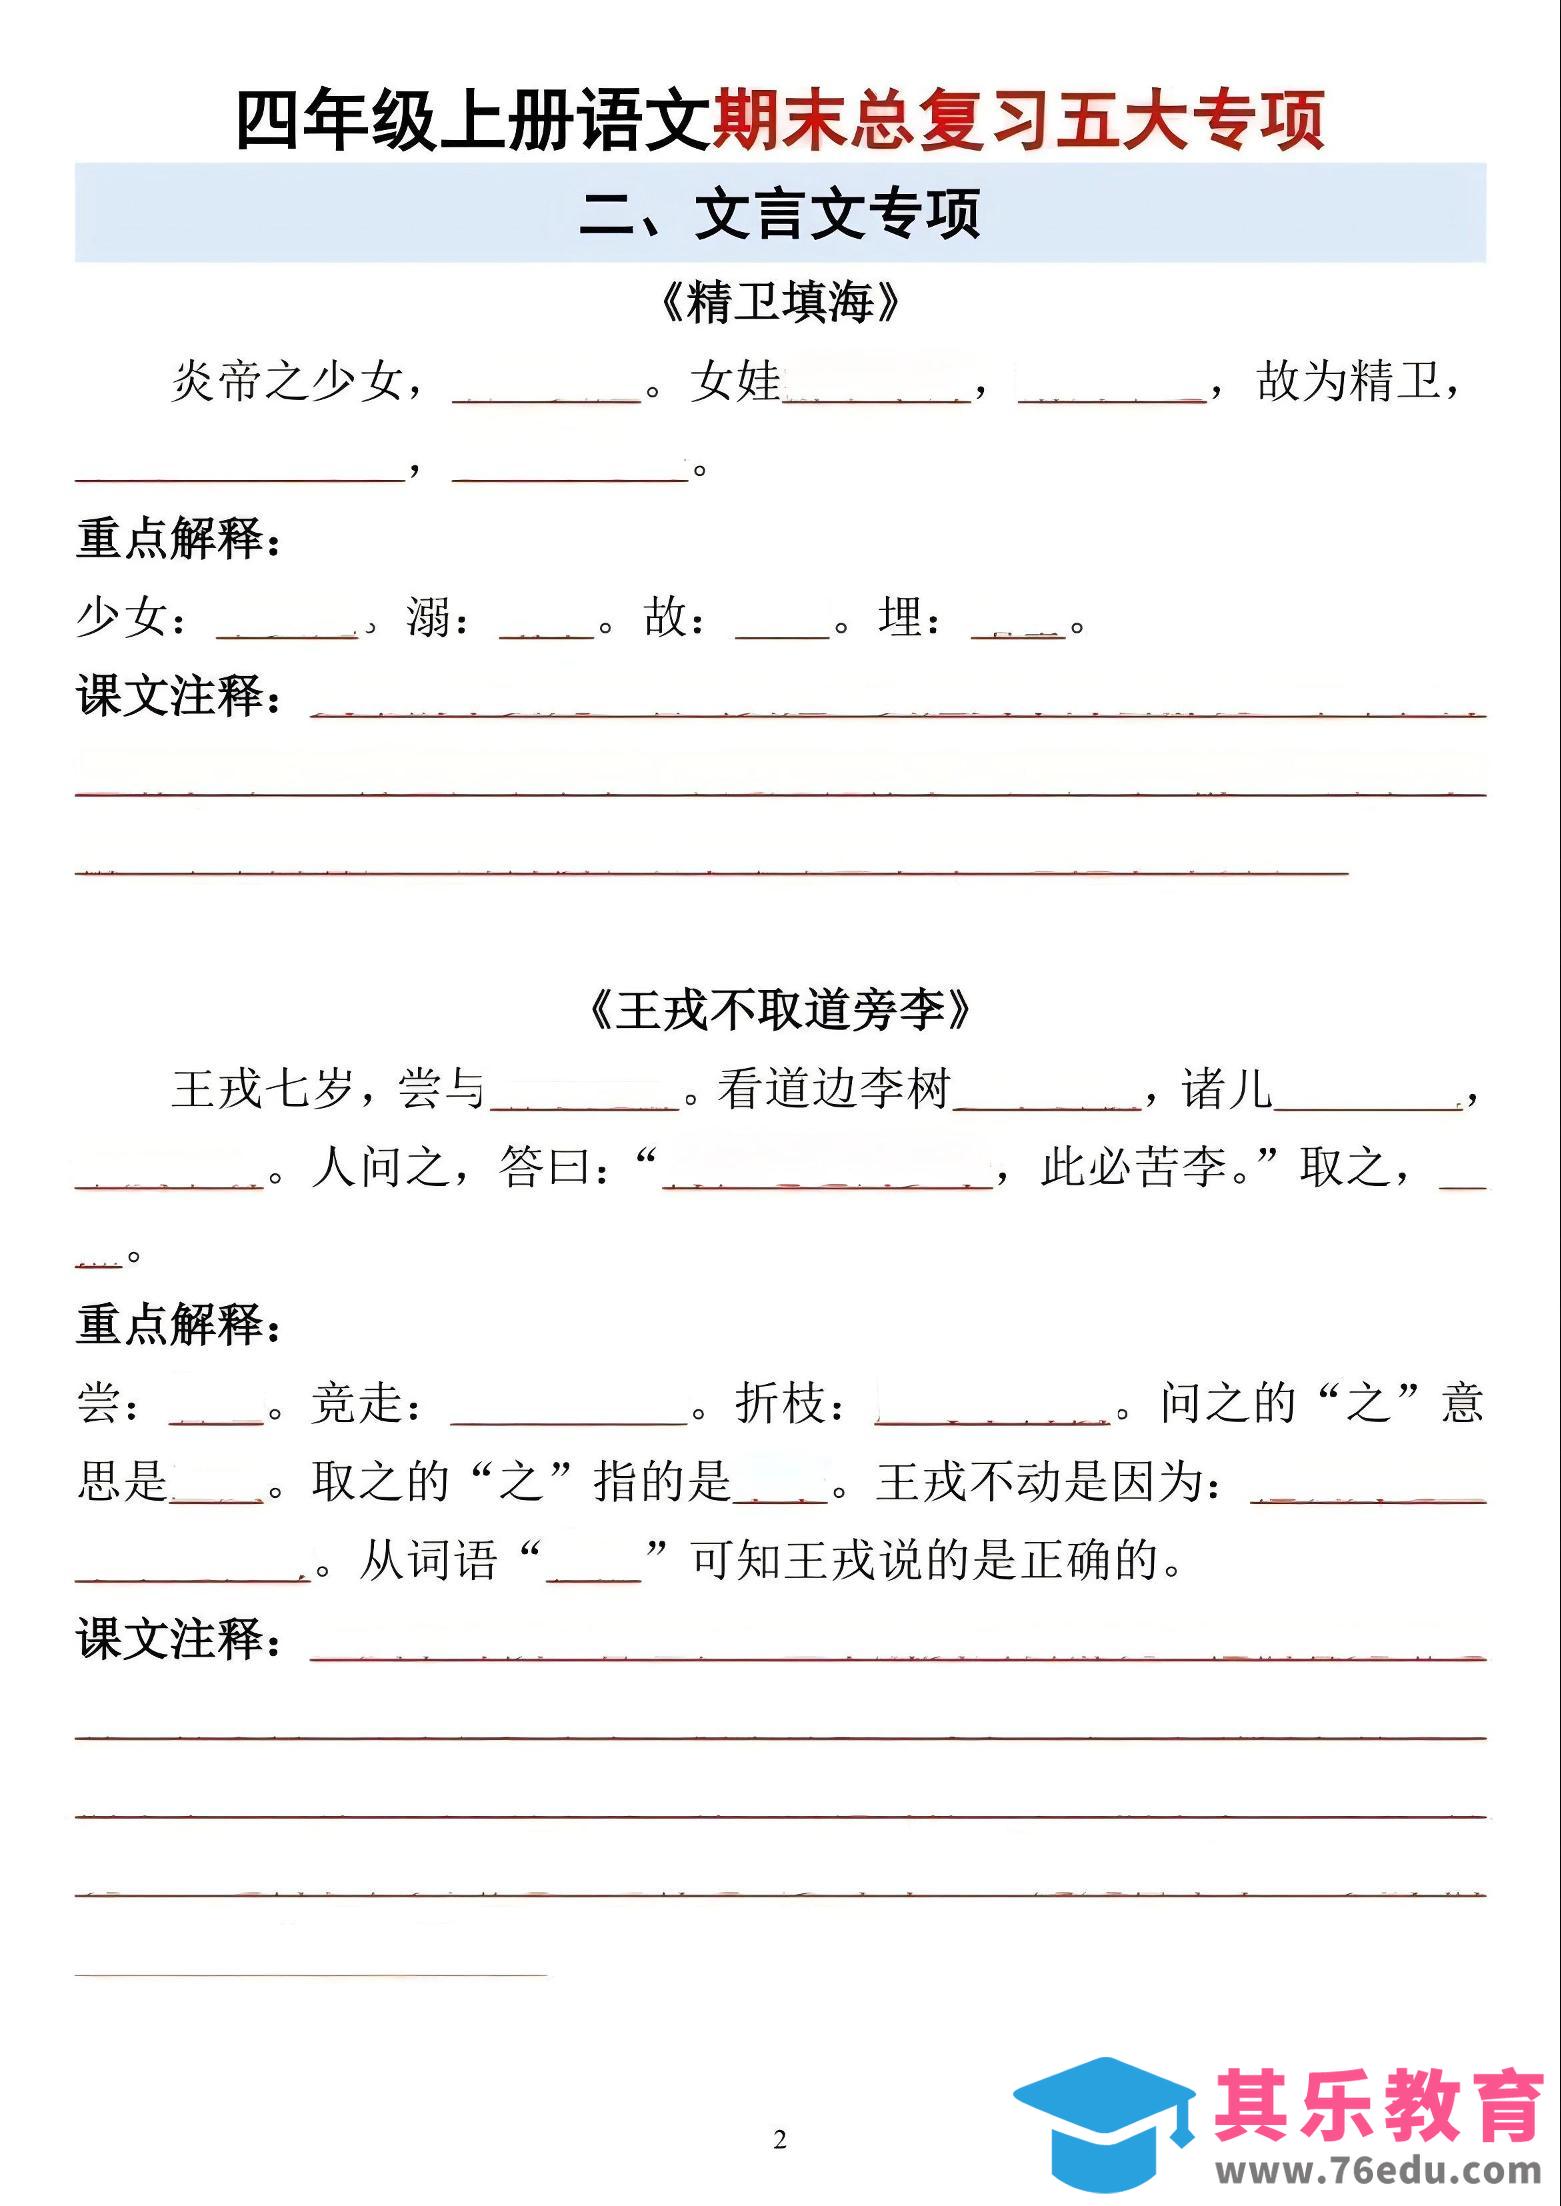 四年级上册语文期末总复习五大专项
二、文言文专项
《精卫填海》
炎帝之少女，________。女娃________，________，故为精卫，
______________，__________。
重点解释：
少女：______。溺：____。故：____。埋：____。
课文注释：
《王戎不取道旁李》
王戎七岁，尝与________。看道边李树________，诸儿________，
________。人问之，答曰：“______________，此必苦李。”取之，__
__。
重点解释：
尝：____。竞走：__________。折枝：__________。问之的“之”意
思是____。取之的“之”指的是____。王戎不动是因为：__________
__________。从词语“____”可知王戎说的是正确的。
课文注释：
2
其乐教育
www.76edu.com